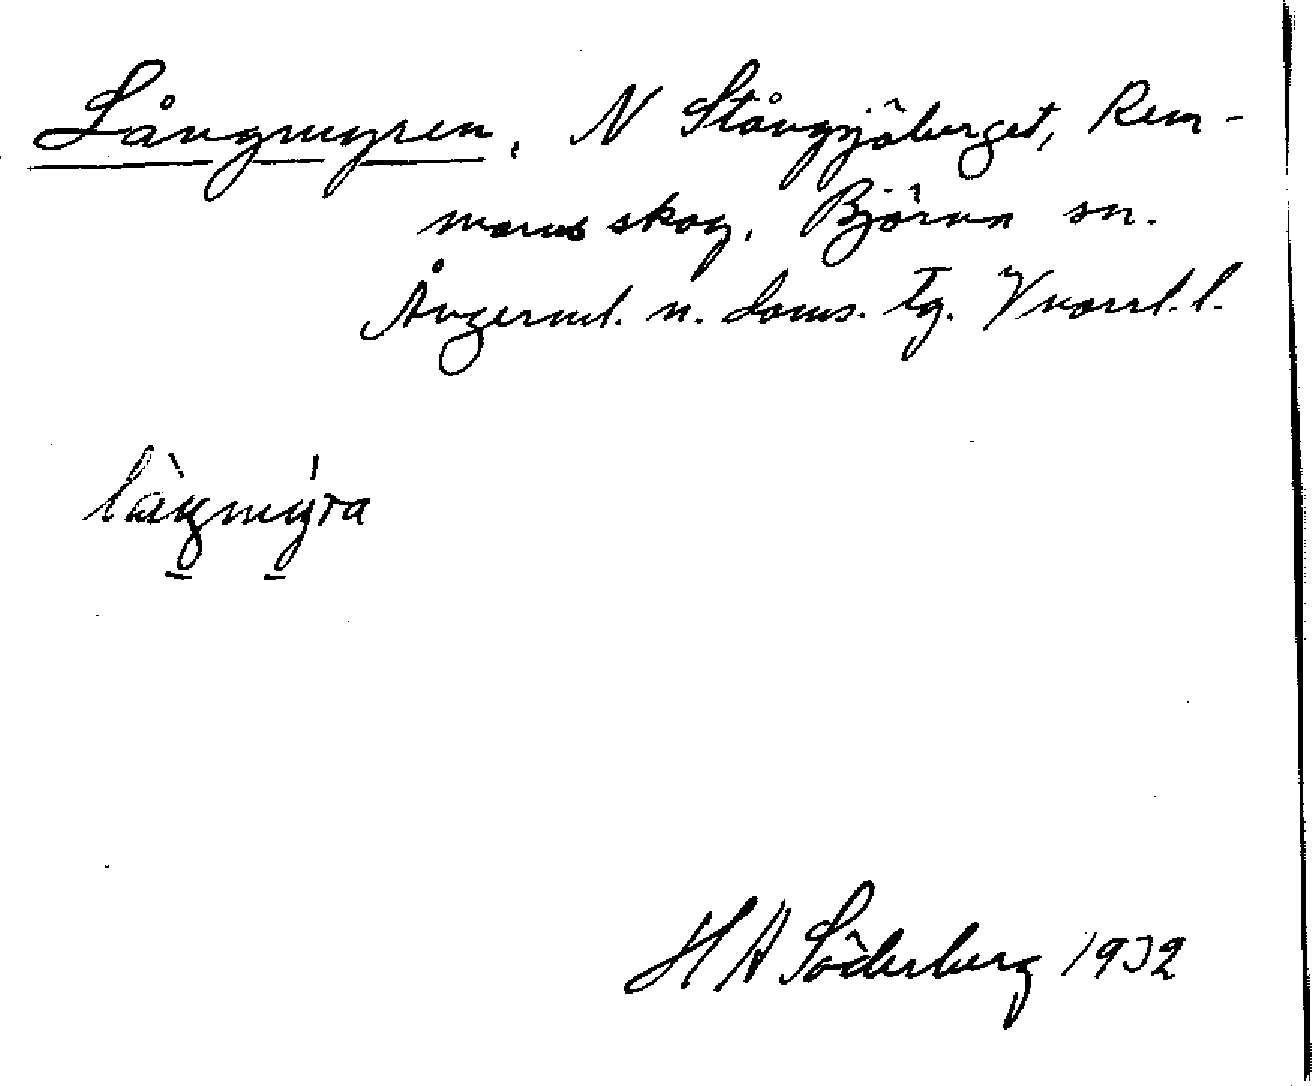 Långmyren, N Stångsjöberget, Rem-
mars skog, Björna sn.
Ångerml. n. doms. tg. Vnorrl. l.
làŋmýra
H A Söderberg 1932